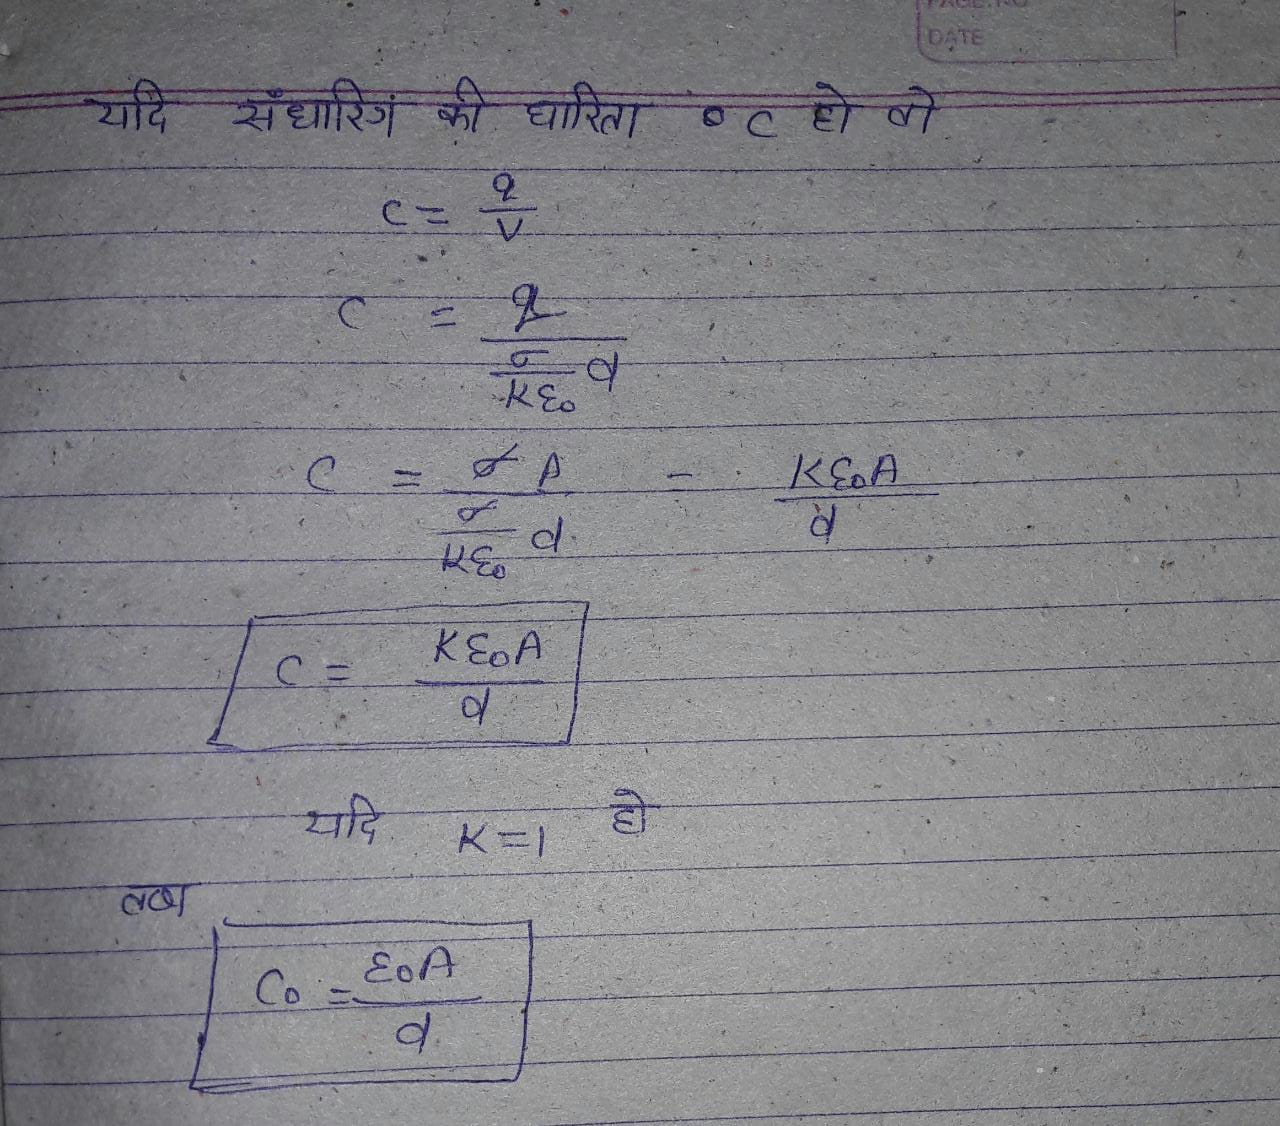 PAGE NO
DATE
यदि संधारिगं की धारिता C हो तो
C = q/V
C = q / (σ/Kε₀ d)
C = σA / (σ/Kε₀ d) - Kε₀A/d
C = Kε₀A/d
यदि K=1 हो
तब
C₀ = ε₀A/d